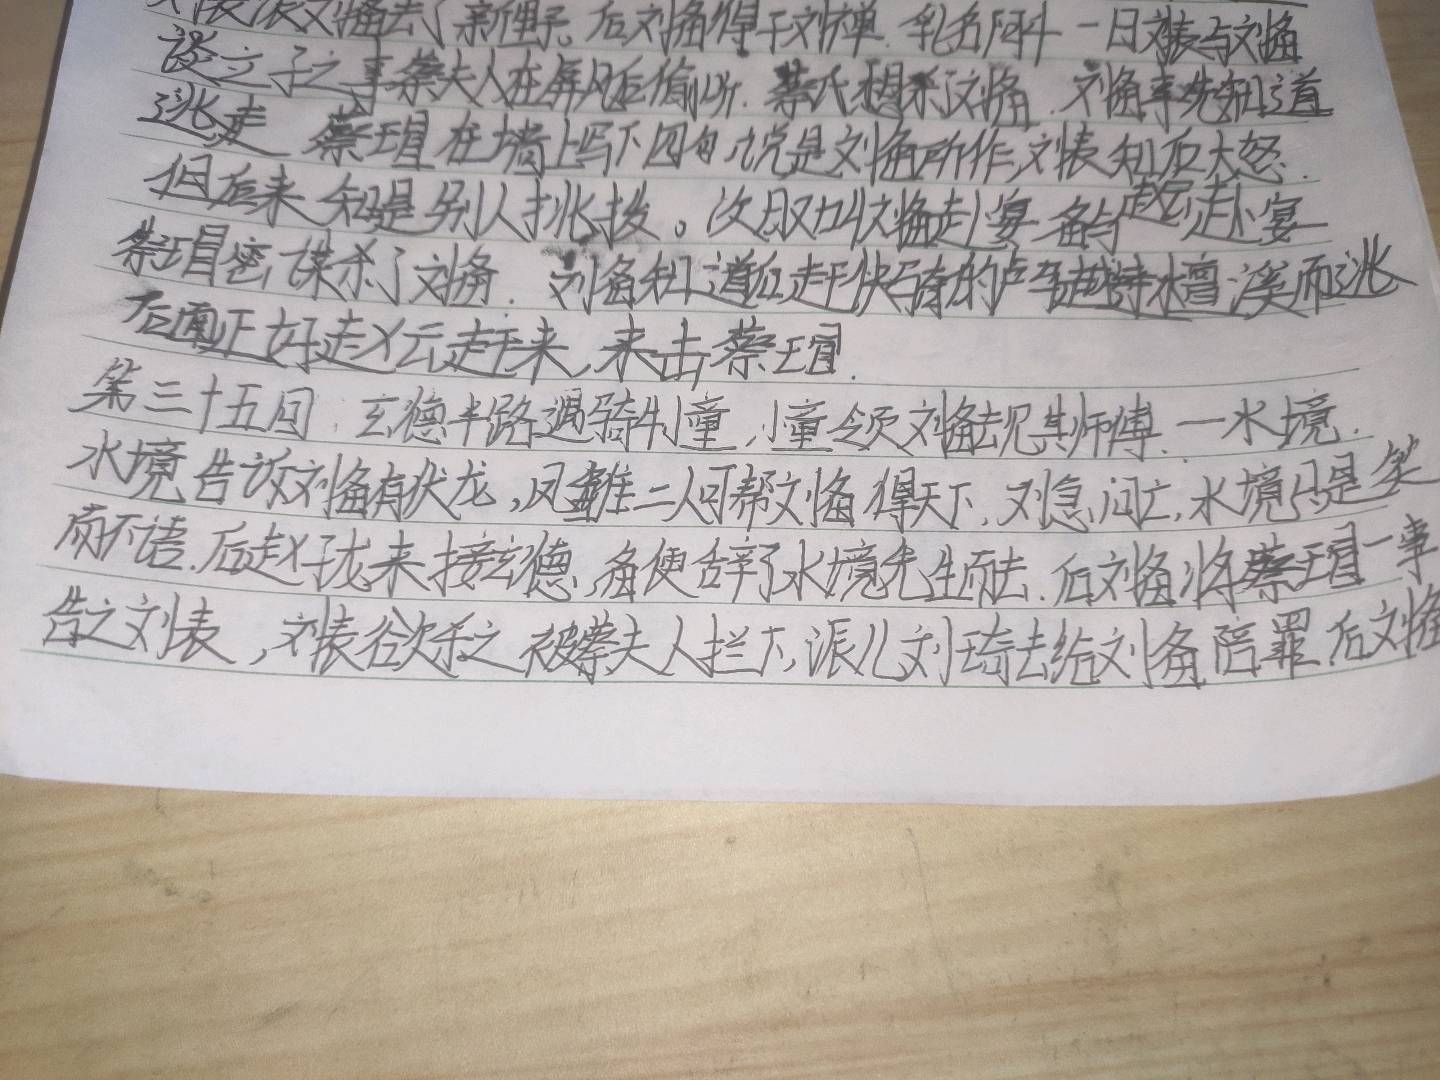 刘表派刘备去了新野。后刘备得子刘禅.乳名阿斗 一日刘表与刘备
谈立子之事蔡夫人在屏风后偷听.蔡氏想杀了刘备.刘备事先知道
逃走 蔡瑁在墙上写下四句,说是刘备所作,刘表知后大怒.
但后来知是别人挑拨。次日又叫刘备赴宴 备与赵云赴宴
蔡瑁密谋杀了刘备.刘备知道后赶快骑的卢马越檀溪而逃
后面正好赵云赶来,来击蔡瑁.
第三十五回.玄德半路遇骑牛小童,小童领刘备去见其师傅.一水境.
水境告诉刘备有伏龙,凤雏二人可帮刘备得天下,刘急问,水境只是笑
而不语.后赵子龙来接玄德,备便辞了水境先生而去.后刘备将蔡瑁一事
告之刘表,刘表欲杀之 被蔡夫人拦下,派儿刘琦去给刘备陪罪.后刘备